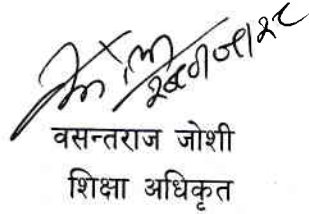 वसन्तराज जोशी
शिक्षा अधिकृत